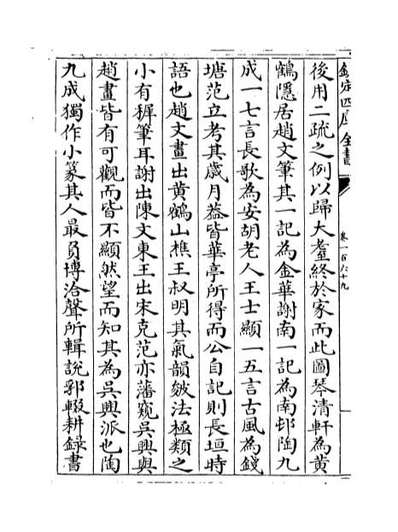 欽定四庫全書
卷一百六十九
後用二疏之例以歸大耋終於家而此圖琴清軒為黃
鶴隱居趙文筆其一記為金華謝南一記為南邨陶九
成一七言長歌為安胡老人王士顯一五言古風為錢
塘范立考其歲月葢皆華亭所得而公自記則長垣時
語也趙文畫出黃鶴山樵王叔明其氣韻皴法極類之
小有穉筆耳謝出陳文東王出宋克范亦藩窺吳興與
趙畫皆有可觀而皆不顯然望而知其為吳興派也陶
九成獨作小篆其人最員博洽聲所輯說郛輟耕錄書